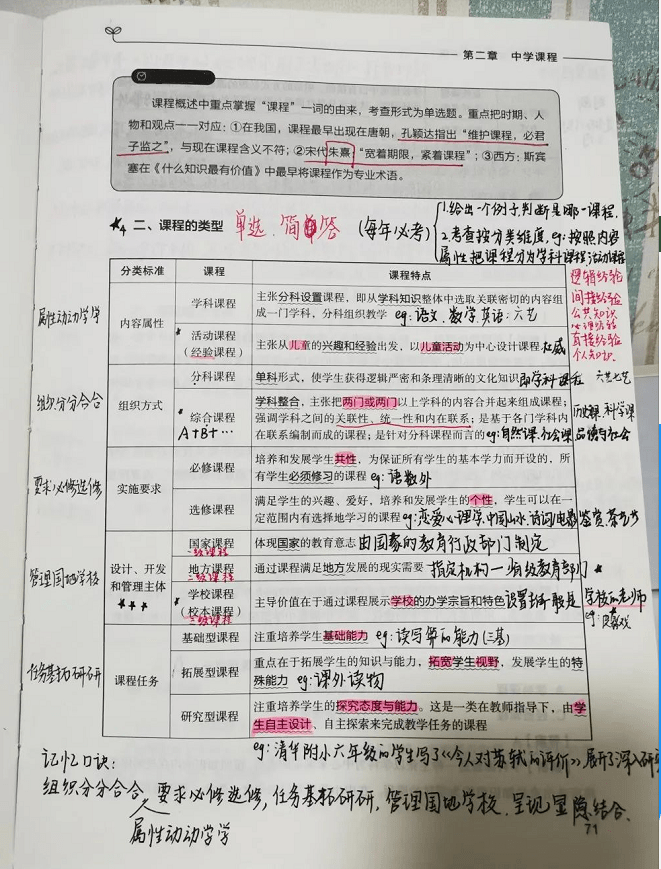 第二章 中学课程
课程概述中重点掌握“课程”一词的由来，考查形式为单选题。重点把时期、人
物和观点一一对应：①在我国，课程最早出现在唐朝，孔颖达指出“维护课程，必君
子监之”，与现在课程含义不符；②宋代朱熹“宽着期限，紧着课程”；③西方：斯宾
塞在《什么知识最有价值》中最早将课程作为专业术语。
★4 二、课程的类型 单选、简答 (每年必考)
1.给出一个例子,判断是哪一课程.
2.考查按分类维度, eg:按照内容
属性把课程分为学科课程活动课程
分类标准 课程 课程特点
逻辑经验
间接经验
公共知识
心理经验
直接经验
个人知识.
属性动动学学
内容属性
学科课程
主张分科设置课程，即从学科知识整体中选取关联密切的内容组
成一门学科，分科组织教学 eg:语文、数学、英语；六艺
活动课程
（经验课程）
主张从儿童的兴趣和经验出发，以儿童活动为中心设计课程 杜威
组织分分合合
组织方式
分科课程
单科形式，使学生获得逻辑严密和条理清晰的文化知识 即学科课程 六艺七艺
综合课程
A+B+…
学科整合，主张把两门或两门以上学科的内容合并起来组成课程；
强调学科之间的关联性、统一性和内在联系；是基于各门学科内
在联系编制而成的课程；是针对分科课程而言的 eg:自然课,社会课 品德与社会
历史课,科学课
要求必修选修
实施要求
必修课程
培养和发展学生共性，为保证所有学生的基本学力而开设的，所
有学生必须修习的课程 eg:语数外
选修课程
满足学生的兴趣、爱好，培养和发展学生的个性，学生可以在一
定范围内有选择地学习的课程 eg:恋爱心理学,中国山水,诗词,电影鉴赏,茶艺书
管理国地学校
设计、开发
和管理主体
★★★
国家课程
一级课程
体现国家的教育意志 由国家的教育行政部门制定
地方课程
二级课程
通过课程满足地方发展的现实需要 指定机构一省级教育部门 ★
学校课程
（校本课程）
三级课程
主导价值在于通过课程展示学校的办学宗旨和特色 设置推敲是 学校的老师
eg:皮影戏
任务基拓研研
课程任务
基础型课程
注重培养学生基础能力 eg:读写算的能力(三基)
拓展型课程
重点在于拓展学生的知识与能力，拓宽学生视野，发展学生的特
殊能力 eg:课外读物
研究型课程
注重培养学生的探究态度与能力。这是一类在教师指导下，由学
生自主设计、自主探索来完成教学任务的课程
eg:清华附小六年级的学生写了《今人对苏轼的评价》,展开了深入研究
记忆口诀:
组织分分合合,要求必修选修,任务基拓研研,管理国地学校、呈现显隐结合.
属性动动学学
71